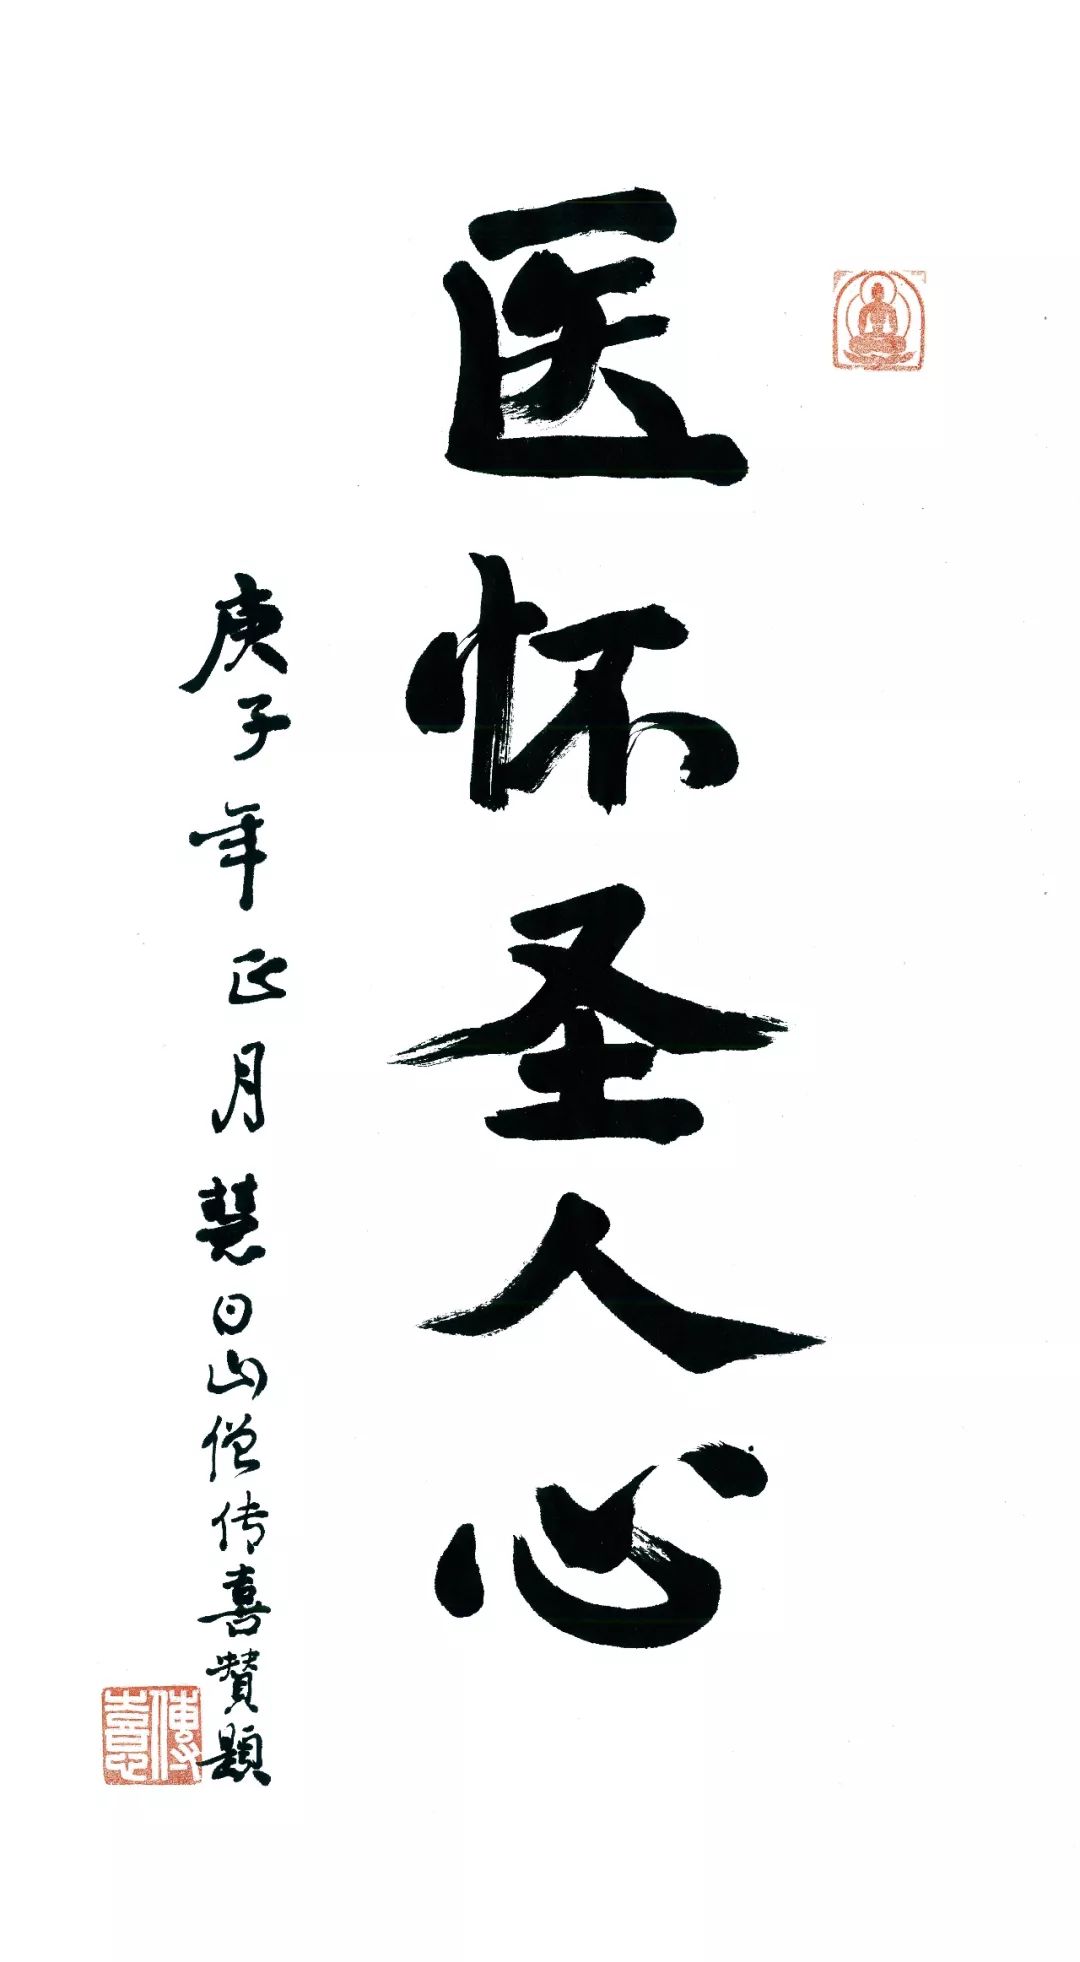 医怀圣人心
庚子年正月慧日山僧传喜赞题
傳喜